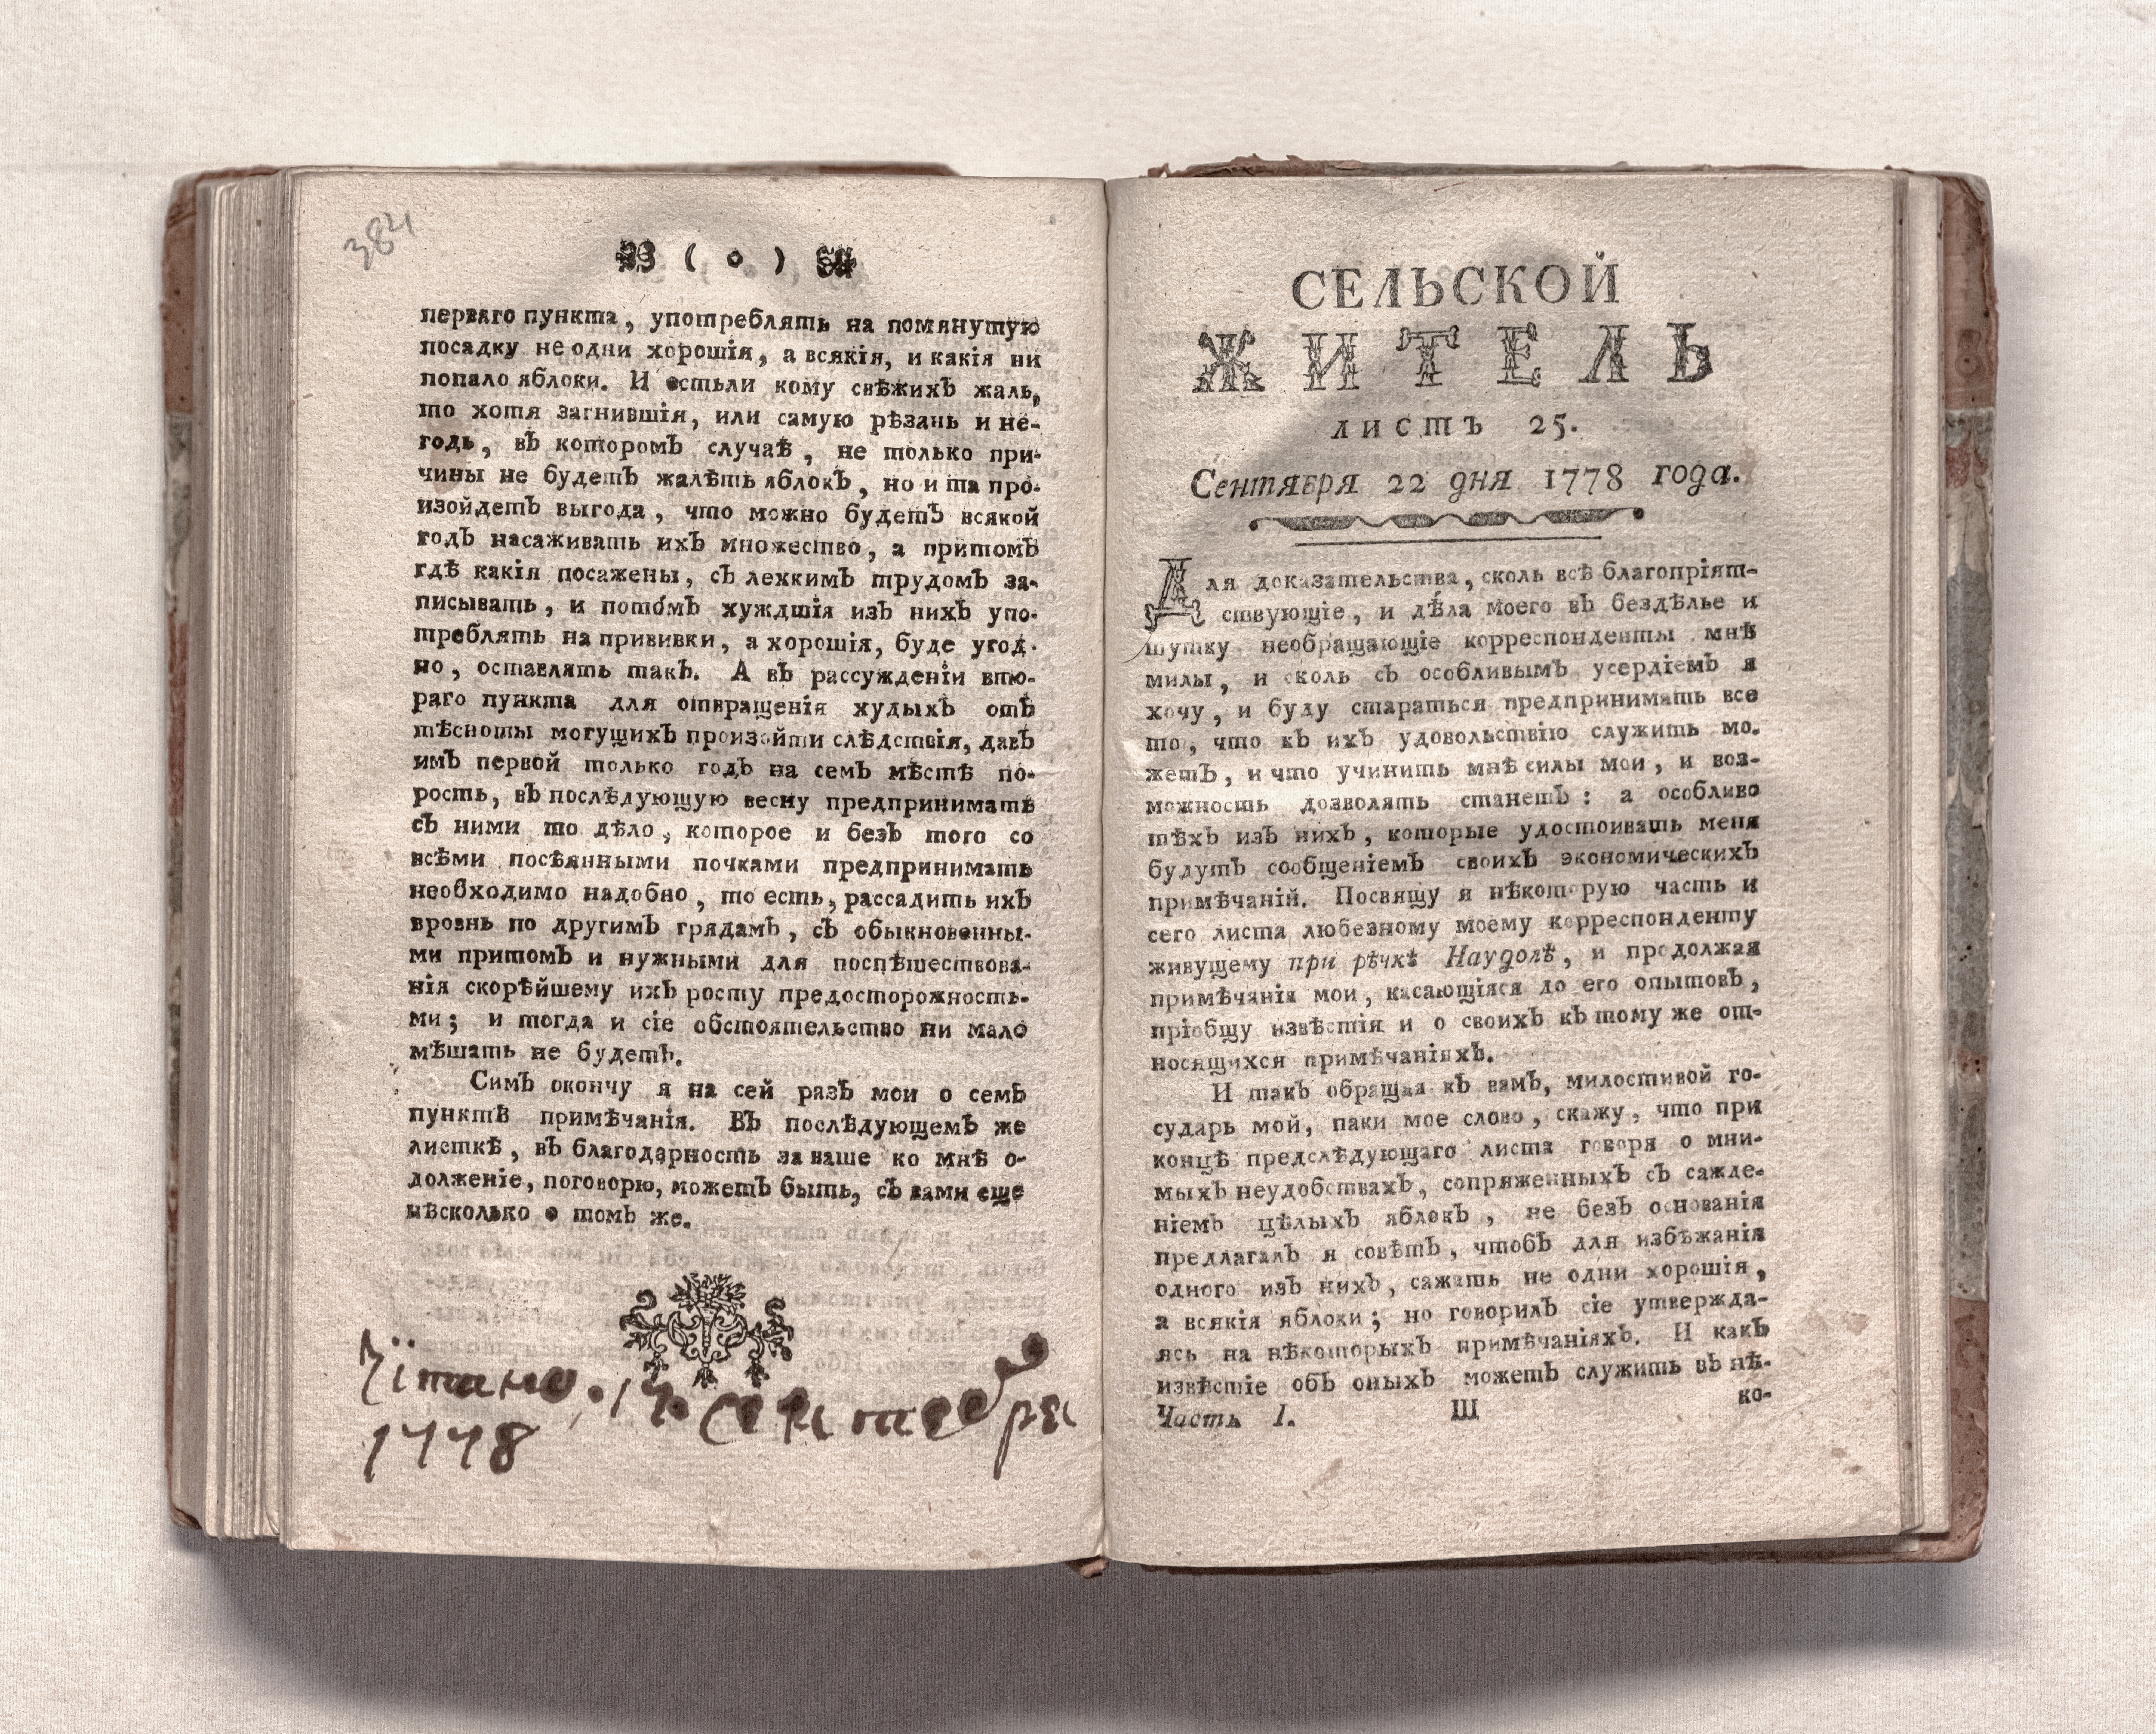 384
( о )
перваго пункта, употреблять на помянутую
посадку не одни хорошія, а всякія, и какія ни
попало яблоки. И естьли кому свѣжихъ жаль,
то хотя загнившія, или самую рѣзань и не-
годь, въ которомъ случаѣ, не только при-
чины не будетъ жалѣть яблокъ, но и та про-
изойдетъ выгода, что можно будетъ всякой
годъ насаживать ихъ множество, а притомъ
гдѣ какія посажены, съ лехкимъ трудомъ за-
писывать, и пото́мъ хуждшія изъ нихъ упо-
треблять на прививки, а хорошія, буде угод-
но, оставлять такъ. А въ разсужденіи вто-
раго пункта для отвращенія худыхъ отъ
тѣсноты могущихъ произойти слѣдствія, давъ
имъ первой только годъ на семъ мѣстѣ по-
рость, въ послѣдующую весну предпринимать
съ ними то дѣло, которое и безъ того со
всѣми посѣянными почками предпринимать
необходимо надобно, то есть, рассадить ихъ
врознь по другимъ грядамъ, съ обыкновенны-
ми притомъ и нужными для поспѣшествова-
нія скорѣйшему ихъ росту предосторожность-
ми; и тогда и сіе обстоятельство ни мало
мѣшать не будетъ.
Симъ окончу я на сей разъ мои о семъ
пунктѣ примѣчанія. Въ послѣдующемъ же
листкѣ, въ благодарность за ваше ко мнѣ о-
долженіе, поговорю, можетъ быть, съ вами еще
нѣсколько о томъ же.
Чїтано. 17. сентебря
1778
СЕЛЬСКОЙ
ЖИТЕЛЬ
листъ 25.
Сентября 22 дня 1778 года.
Для доказательства, сколь всѣ благопріят-
ствующіе, и дѣ́ла моего въ бездѣлье и
шутку необращающіе корреспонденты мнѣ
милы, и сколь съ особливымъ усердіемъ я
хочу, и буду стараться предпринимать все
то, что къ ихъ удовольствію служить мо-
жетъ, и что учинить мнѣ силы мои, и воз-
можность дозволять станетъ: а особливо
тѣхъ изъ нихъ, которые удостоивать меня
будутъ сообщеніемъ своихъ экономическихъ
примѣчаній. Посвящу я нѣкоторую часть и
сего листа любезному моему корреспонденту
живущему при рѣчкѣ Наудолѣ, и продолжая
примѣчанія мои, касающіяся до его опытовъ,
пріобщу извѣстія и о своихъ къ тому же от-
носящихся примѣчаніяхъ.
И такъ обращая къ вамъ, милостивой го-
сударь мой, паки мое слово, скажу, что при
концѣ предслѣдующаго листа говоря о мни-
мыхъ неудобствахъ, сопряженныхъ съ сажде-
ніемъ цѣлыхъ яблокъ, не безъ основанія
предлагалъ я совѣтъ, чтобъ для избѣжанія
одного изъ нихъ, сажать не одни хорошія,
а всякія яблоки; но говорилъ сіе утвержда-
ясь на нѣкоторыхъ примѣчаніяхъ. И какъ
извѣстіе объ оныхъ можетъ служить въ нѣ-
ко-
Часть I. Ш